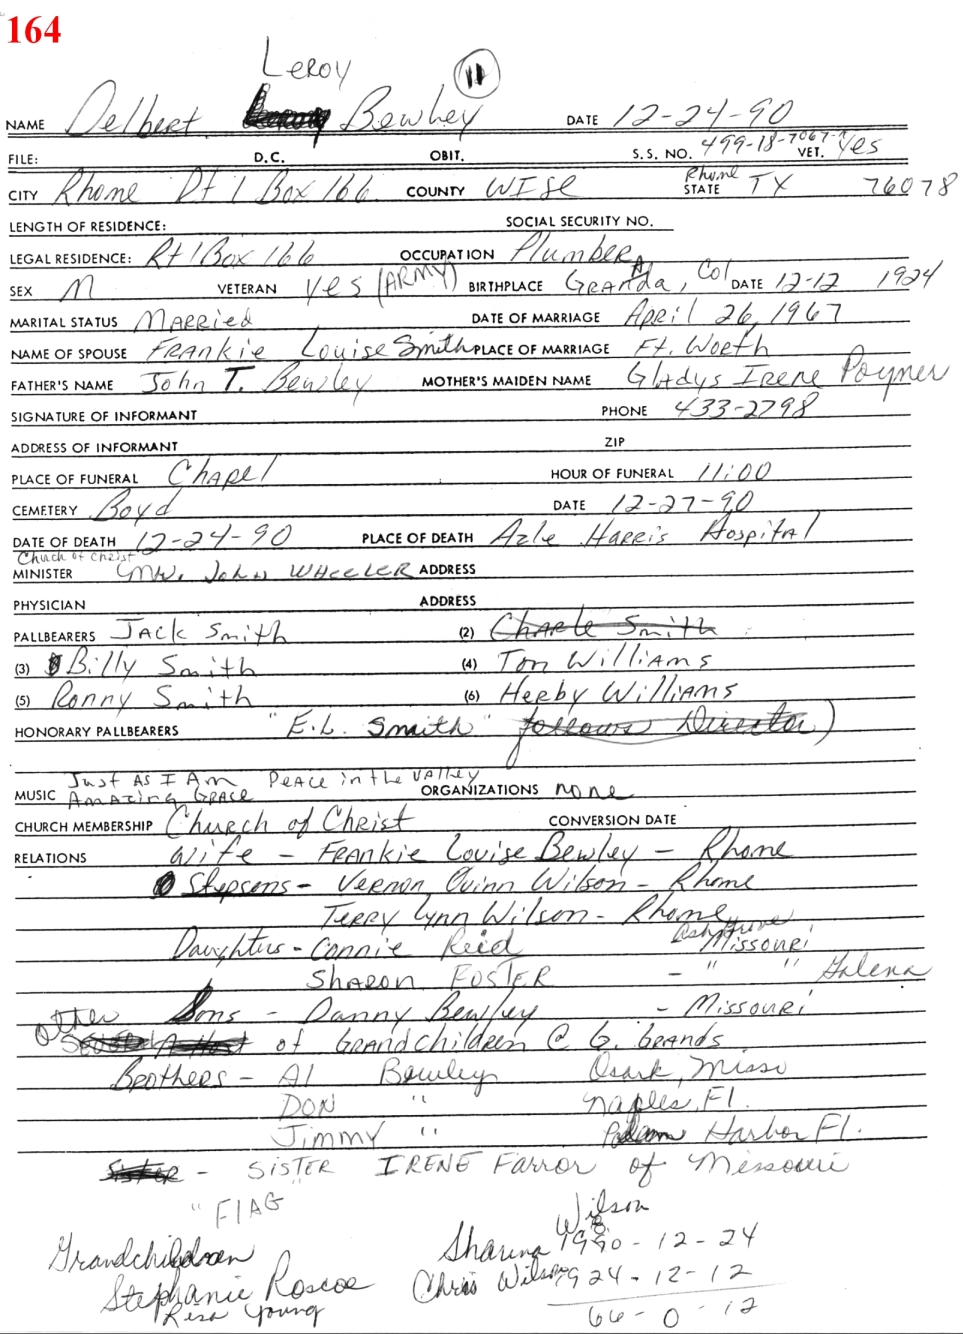 164
Leroy 11
NAME Delbert Bewley DATE 12-24-90
FILE: D.C. OBIT. S.S. NO. 499-18-7067 VET. Yes
CITY Rhome Rt 1 Box 166 COUNTY WISE Rhome STATE TX 76078
LENGTH OF RESIDENCE: SOCIAL SECURITY NO.
LEGAL RESIDENCE: Rt 1 Box 166 OCCUPATION Plumber
SEX M VETERAN yes (ARMY) BIRTHPLACE GRANADA, Col DATE 12-12 1924
MARITAL STATUS MARRied DATE OF MARRIAGE April 26, 1967
NAME OF SPOUSE FRANkie Louise Smith PLACE OF MARRIAGE Ft. Worth
FATHER'S NAME John T. Bewley MOTHER'S MAIDEN NAME Gladys Irene Poyner
SIGNATURE OF INFORMANT PHONE 433-2798
ADDRESS OF INFORMANT ZIP
PLACE OF FUNERAL Chapel HOUR OF FUNERAL 11:00
CEMETERY Boyd DATE 12-27-90
DATE OF DEATH 12-24-90 PLACE OF DEATH Azle Harris Hospital
Church of Christ
MINISTER John WHEELER ADDRESS
PHYSICIAN ADDRESS
PALLBEARERS JACk Smith (2) Charle Smith
(3) Billy Smith (4) Tom WilliAms
(5) Ronny Smith (6) Herby WilliAms
HONORARY PALLBEARERS "E.L. Smith" follows Director)
Just AS I Am Peace in the VAlley
MUSIC AmAzing GRACE ORGANIZATIONS none
CHURCH MEMBERSHIP Church of Christ CONVERSION DATE
RELATIONS Wife - FRANkie Louise Bewley - Rhome
Stepsons - VERNON Quinn Wilson - Rhome
TERRY Lynn Wilson - Rhome
Ash Grove
Daughters - Connie Reid Missouri
SHARON FOSTER - " " Galena
Sons - Danny Bewley - Missouri
other of GRANdchildREN @ G. GRANDS
BROTHERS - Al Bewley Osark, Misso
DON " Naples, Fl.
Jimmy " Harbor Fl.
SISTER - SISTER IRENE Farror of Missouri
"FlAG"
Wilson
Grandchildren Sharina 1990-12-24
Stephanie Roscoe Chris Wilson 1924-12-12
Resa Young 66-0-12